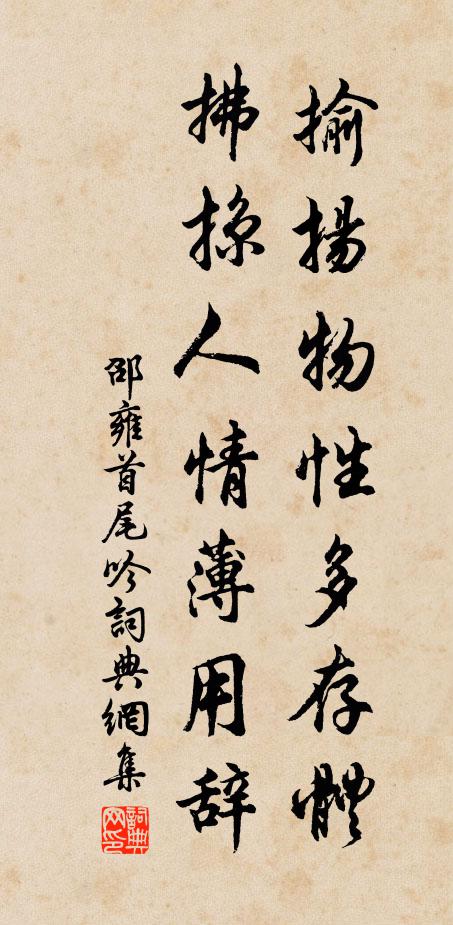 揄揚物性多存體
拂掠人情薄用辞
邵雍首尾吟詞典網集
詞典網印